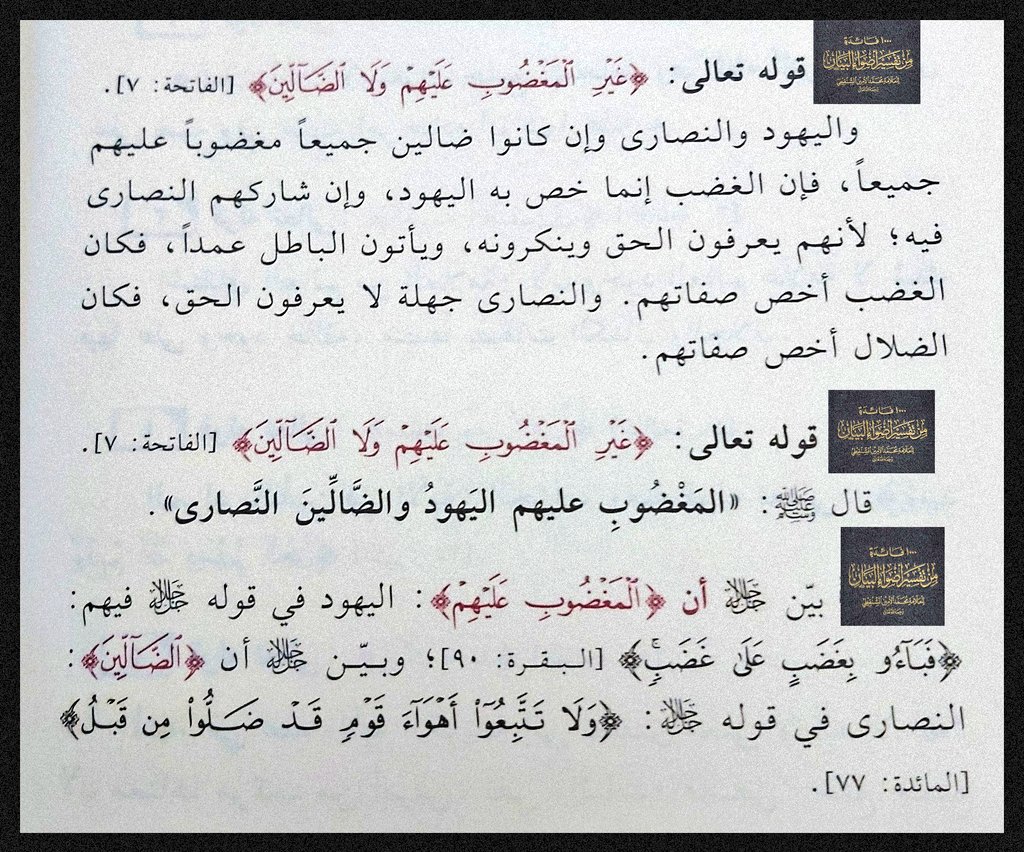 ١٠٠٠ فائدة
من تفسير أضواء البيان
للعلامة محمد الأمين الشنقيطي
قوله تعالى: ﴿غَيْرِ ٱلْمَغْضُوبِ عَلَيْهِمْ وَلَا ٱلضَّآلِّينَ﴾ [الفاتحة: ٧].
واليهود والنصارى وإن كانوا ضالين جميعاً مغضوباً عليهم
جميعاً، فإن الغضب إنما خص به اليهود، وإن شاركهم النصارى
فيه؛ لأنهم يعرفون الحق وينكرونه، ويأتون الباطل عمداً، فكان
الغضب أخص صفاتهم. والنصارى جهلة لا يعرفون الحق، فكان
الضلال أخص صفاتهم.
١٠٠٠ فائدة
من تفسير أضواء البيان
للعلامة محمد الأمين الشنقيطي
قوله تعالى: ﴿غَيْرِ ٱلْمَغْضُوبِ عَلَيْهِمْ وَلَا ٱلضَّآلِّينَ﴾ [الفاتحة: ٧].
قال ﷺ: «المَغْضُوبِ عليهم اليَهودُ والضَّالِّينَ النَّصارى».
١٠٠٠ فائدة
من تفسير أضواء البيان
للعلامة محمد الأمين الشنقيطي
بيّن ﷻ أن ﴿ٱلْمَغْضُوبِ عَلَيْهِمْ﴾: اليهود في قوله ﷻ فيهم:
﴿فَبَآءُو بِغَضَبٍ عَلَىٰ غَضَبٍۚ﴾ [البقرة: ٩٠]؛ وبيّن ﷻ أن ﴿ٱلضَّآلِّينَ﴾:
النصارى في قوله ﷻ: ﴿وَلَا تَتَّبِعُوٓا۟ أَهْوَآءَ قَوْمٍ قَدْ ضَلُّوا۟ مِن قَبْلُ﴾
[المائدة: ٧٧].